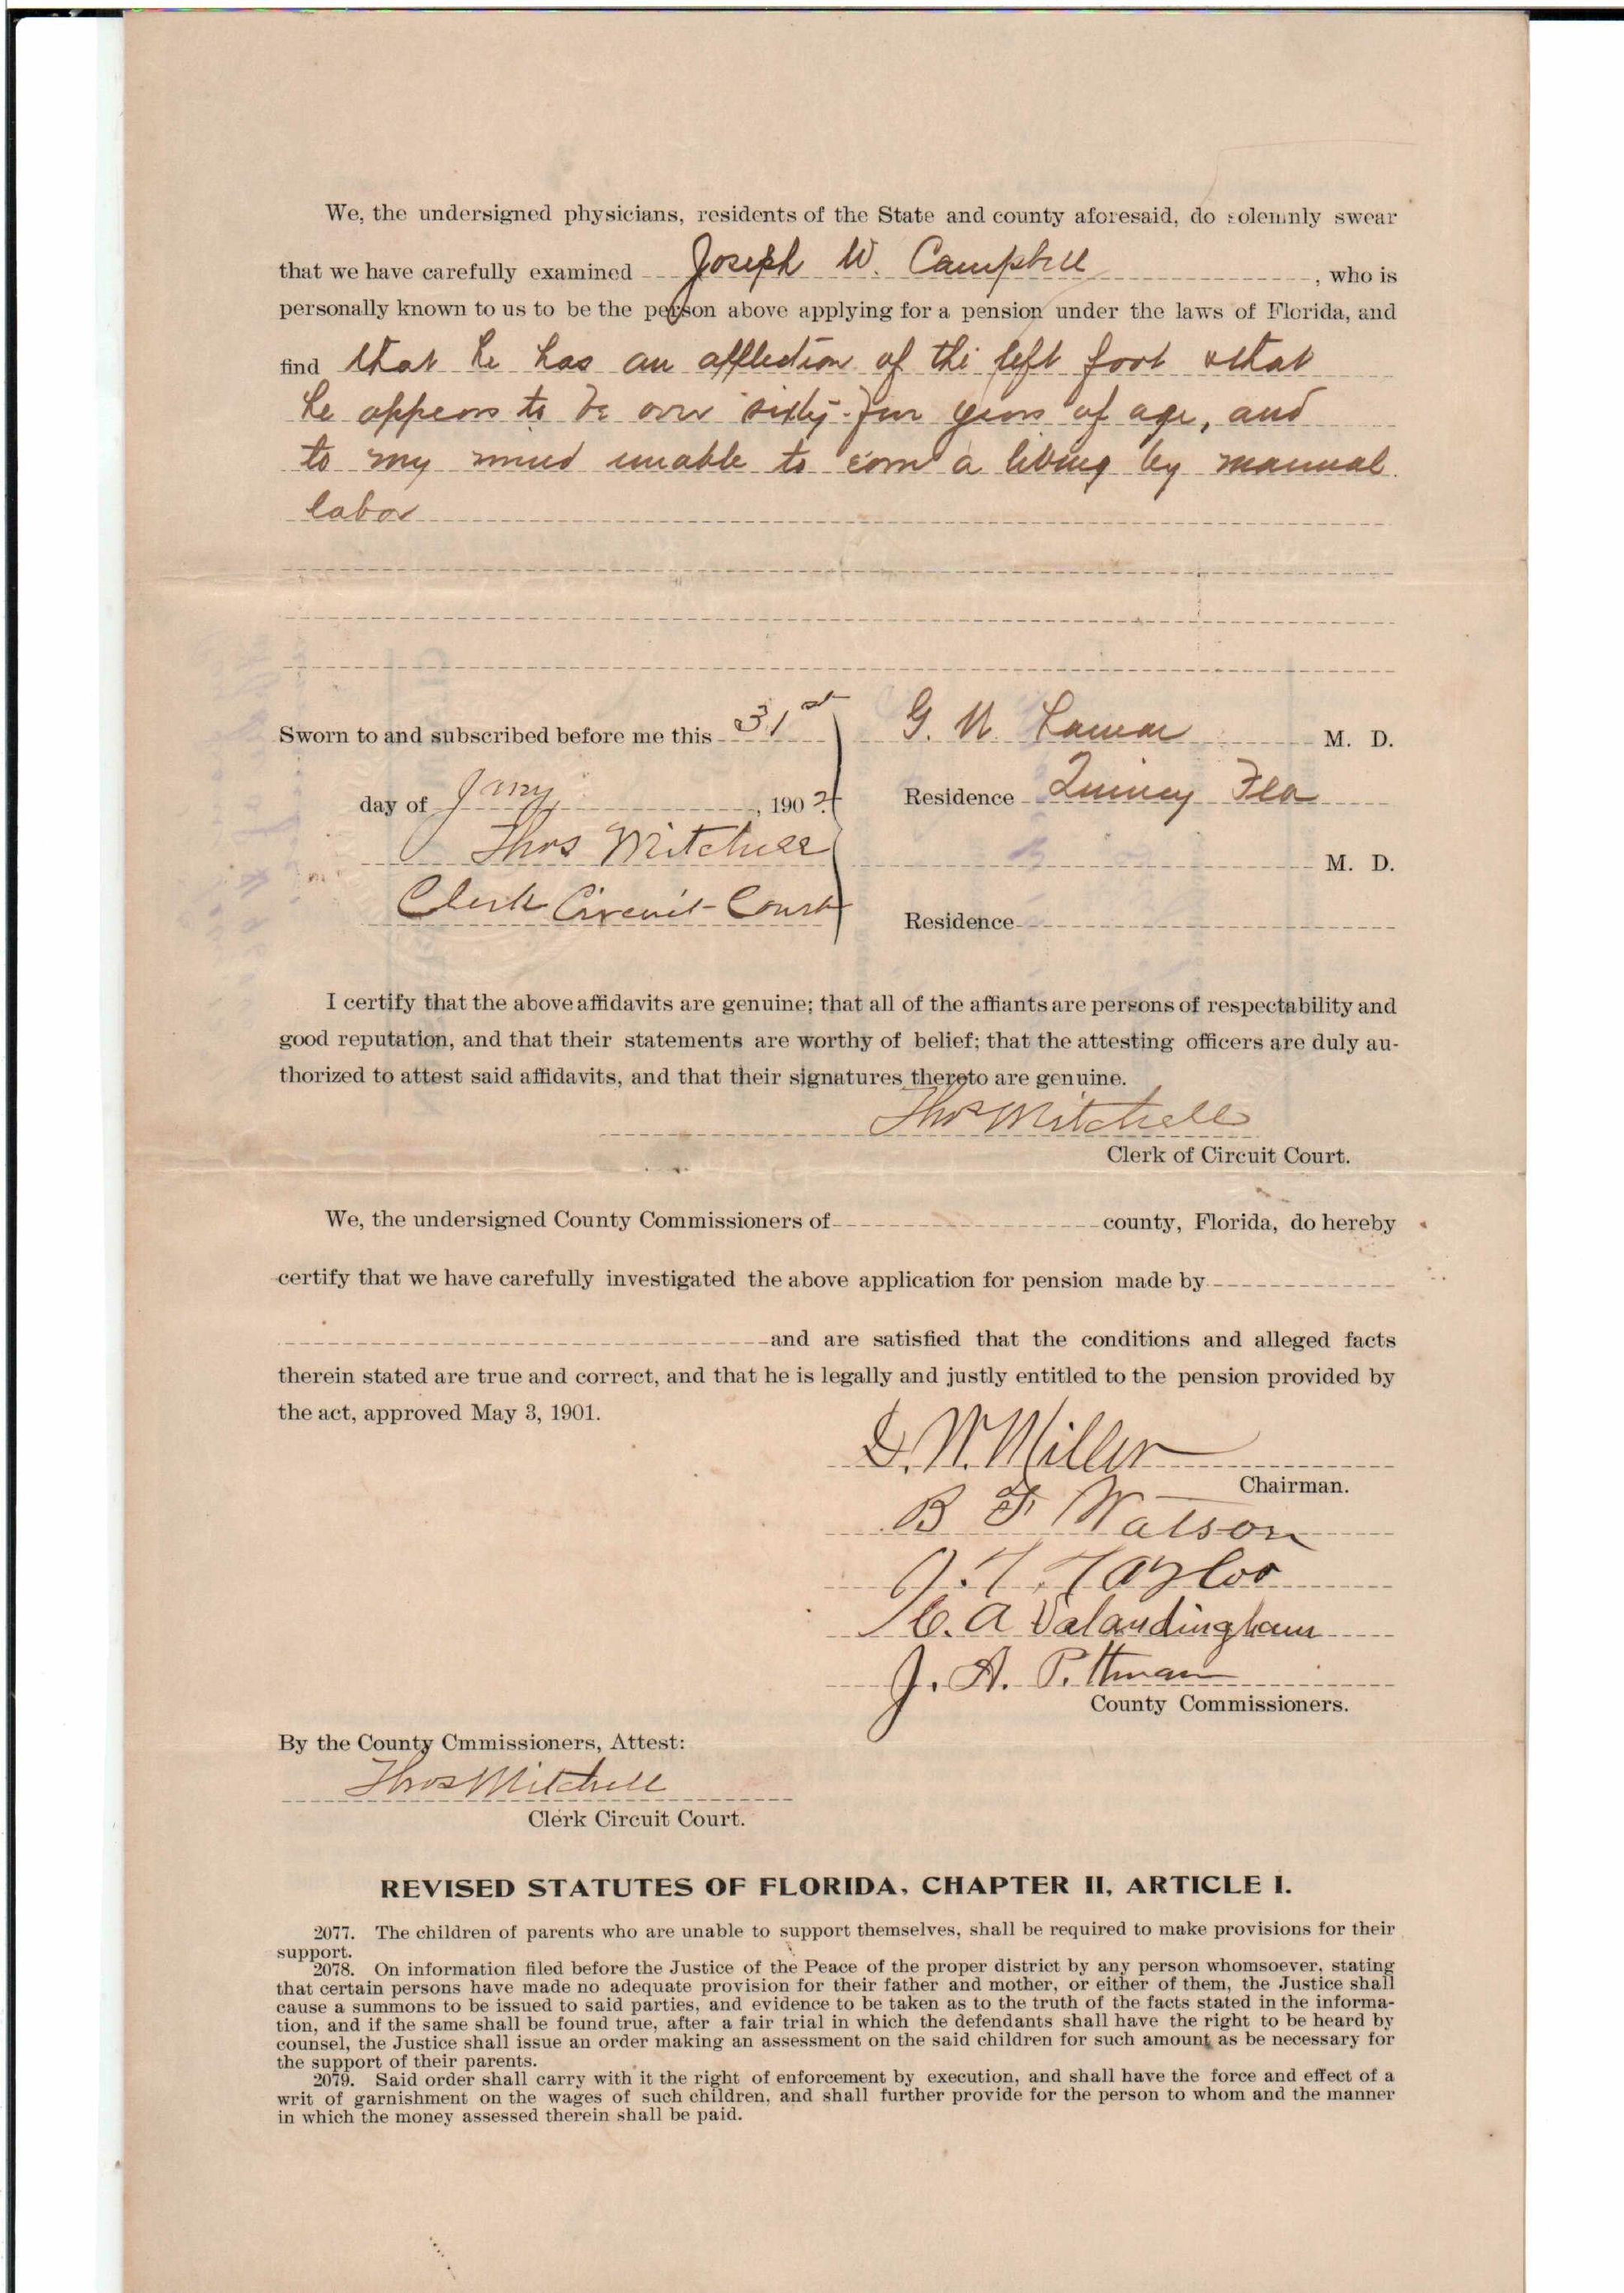 We, the undersigned physicians, residents of the State and county aforesaid, do solemnly swear
that we have carefully examined Joseph W. Campbell, who is
personally known to us to be the person above applying for a pension under the laws of Florida, and
find that he has an affliction of the left foot & that
he appears to be over sixty-four years of age, and
to my mind unable to earn a living by manual
labor
Sworn to and subscribed before me this 31st
day of Jany, 1902
Thos Mitchell
Clerk Circuit Court
G. W. Lamar M. D.
Residence Quincy Fla
M. D.
Residence
I certify that the above affidavits are genuine; that all of the affiants are persons of respectability and
good reputation, and that their statements are worthy of belief; that the attesting officers are duly au-
thorized to attest said affidavits, and that their signatures thereto are genuine.
Thos Mitchell
Clerk of Circuit Court.
We, the undersigned County Commissioners of county, Florida, do hereby
certify that we have carefully investigated the above application for pension made by
and are satisfied that the conditions and alleged facts
therein stated are true and correct, and that he is legally and justly entitled to the pension provided by
the act, approved May 3, 1901.
D. W. Miller
Chairman.
B F Watson
J. T. Taylor
C. A Valandingham
J. A. Pittman
County Commissioners.
By the County Cmmissioners, Attest:
Thos Mitchell
Clerk Circuit Court.
REVISED STATUTES OF FLORIDA, CHAPTER II, ARTICLE I.
2077. The children of parents who are unable to support themselves, shall be required to make provisions for their
support.
2078. On information filed before the Justice of the Peace of the proper district by any person whomsoever, stating
that certain persons have made no adequate provision for their father and mother, or either of them, the Justice shall
cause a summons to be issued to said parties, and evidence to be taken as to the truth of the facts stated in the informa-
tion, and if the same shall be found true, after a fair trial in which the defendants shall have the right to be heard by
counsel, the Justice shall issue an order making an assessment on the said children for such amount as be necessary for
the support of their parents.
2079. Said order shall carry with it the right of enforcement by execution, and shall have the force and effect of a
writ of garnishment on the wages of such children, and shall further provide for the person to whom and the manner
in which the money assessed therein shall be paid.